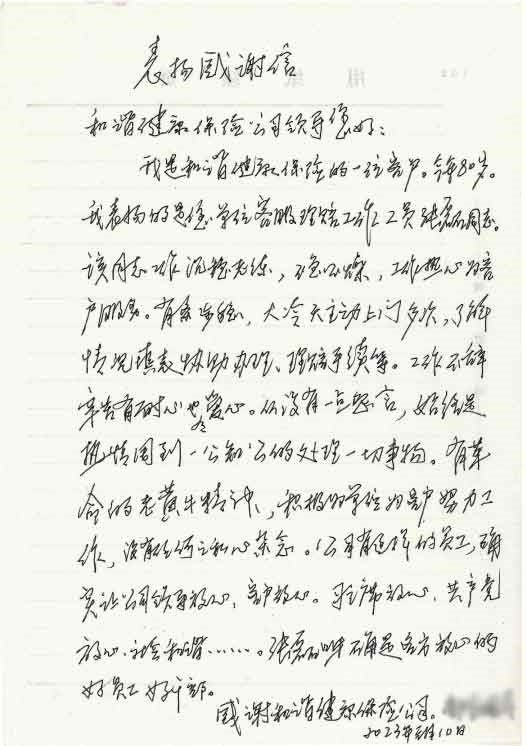 表扬感谢信
和谐健康保险公司领导您好：
我是和谐健康保险的一位客户。今年80岁。
我表扬的是您单位客服理赔工作工员张磊同志。
该同志工作沉稳老练，不急不燥，工作热心为客
户服务。有条步稳，大冷天主动上门多次，了解
情况填表协助办理、理赔手续等。工作不辞
辛苦有耐心也有爱心。从没有一点怨言，始终是
热情周到一公知公的处理一切事物。有革
命的老黄牛精神，积极为单位为客户努力工
作，没有任何之私心杂念。公司有这样的员工，确
实让公司领导放心、客户放心。习主席放心、共产党
放心、社会和谐……。张磊的确是各方放心的
好员工好干部。
感谢和谐健康保险公司。
2023年 月10日